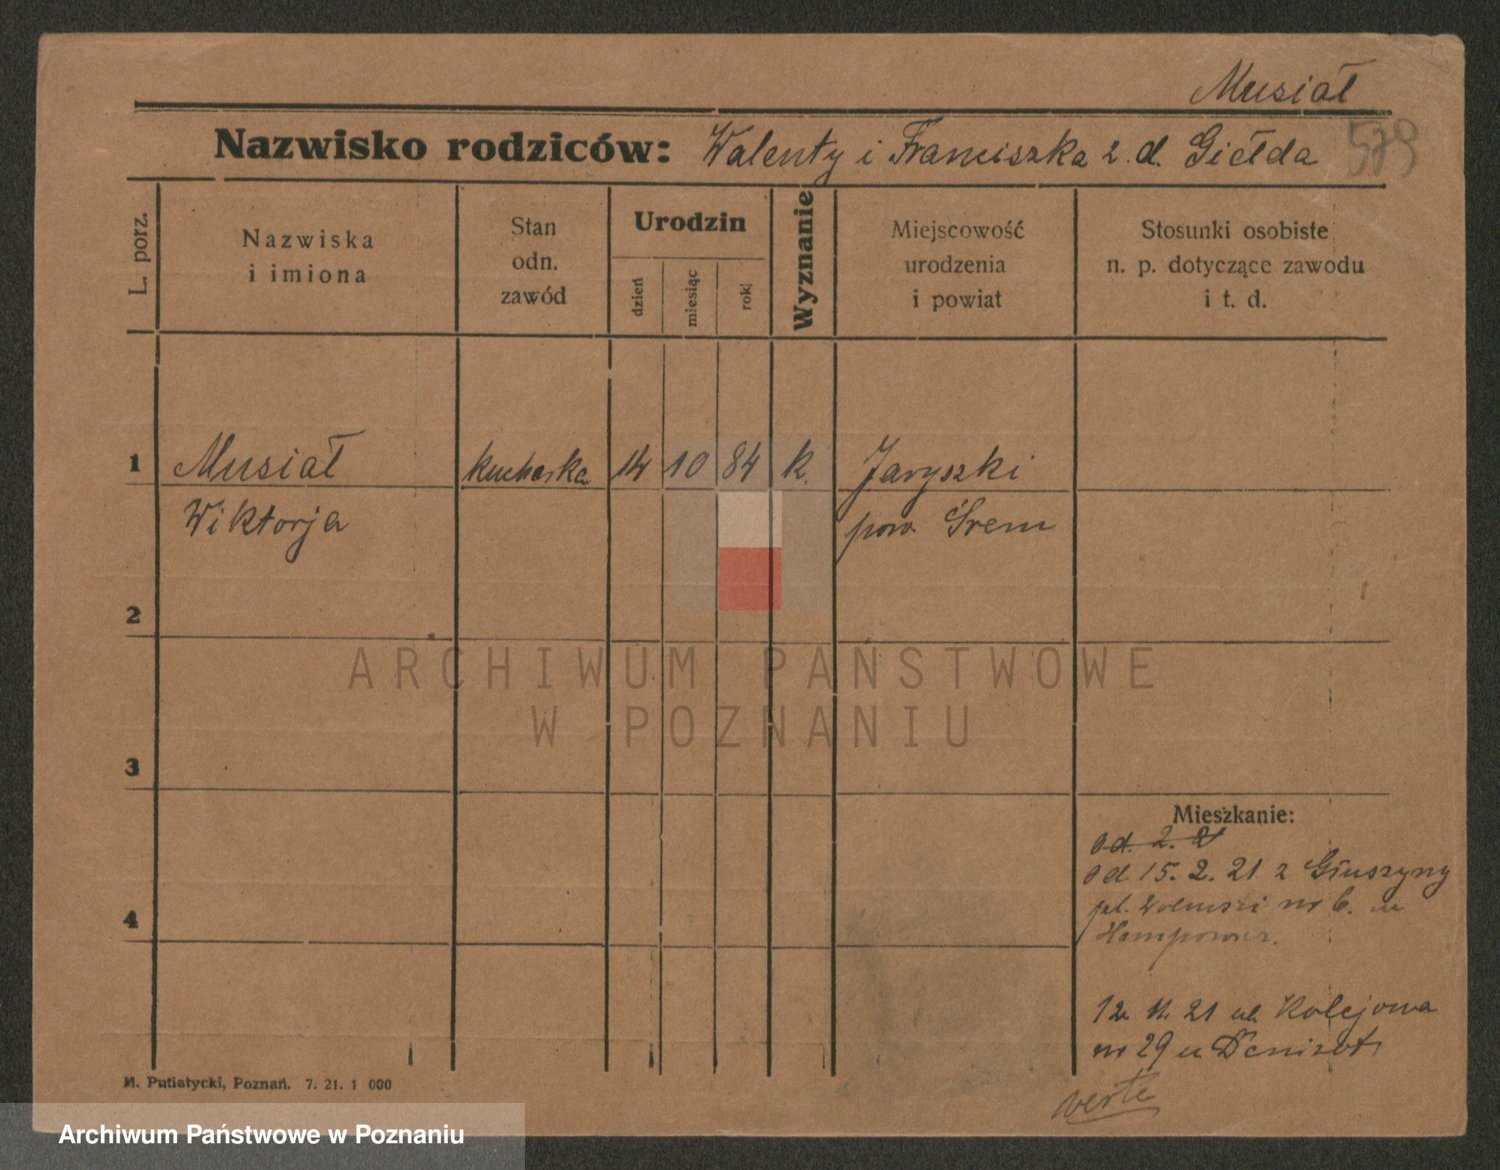 Musiał
Nazwisko rodziców: Walenty i Franciszka z. d. Giełda 579
L. porz.
Nazwiska
i imiona
Stan
odn.
zawód
Urodzin
dzień
miesiąc
rok
Wyznanie
Miejscowość
urodzenia
i powiat
Stosunki osobiste
n. p. dotyczące zawodu
i t. d.
1 Musiał kucharka 14 10 84 k. Jaryszki
Wiktorja pow. Śrem
2
ARCHIWUM PAŃSTWOWE
W POZNANIU
3
Mieszkanie:
od. 2. 21
od 15. 2. 21 z Głuszyny
pl. nr 6. u
4
12. 11. 21 ul. Kolejowa
nr 29 u Denizot
verte
M. Putiatycki, Poznań. 7. 21. 1 000
Archiwum Państwowe w Poznaniu